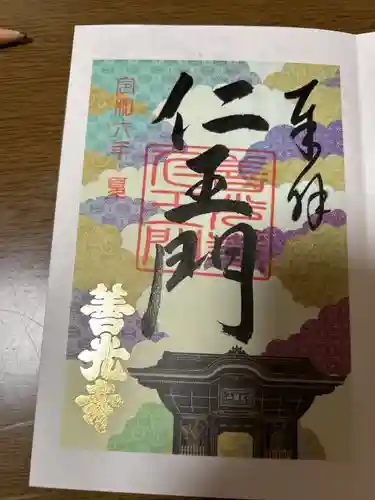 奉拝
仁王門
令和六年 夏
善光寺